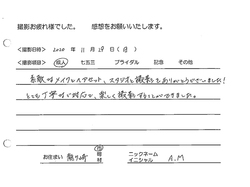 撮影お疲れ様でした。　感想をお願いいたします。
◆撮影日時》 2020 年 11 月 29 日 (日)
◆撮影項目》 成人 七五三 ブライダル 記念 その他
素敵なメイクとヘアセット、スタジオ撮影をありがとうございました!
とても丁寧な対応で、楽しく撮影することができました。
お住まい
ニックネーム
イニシャル A.M